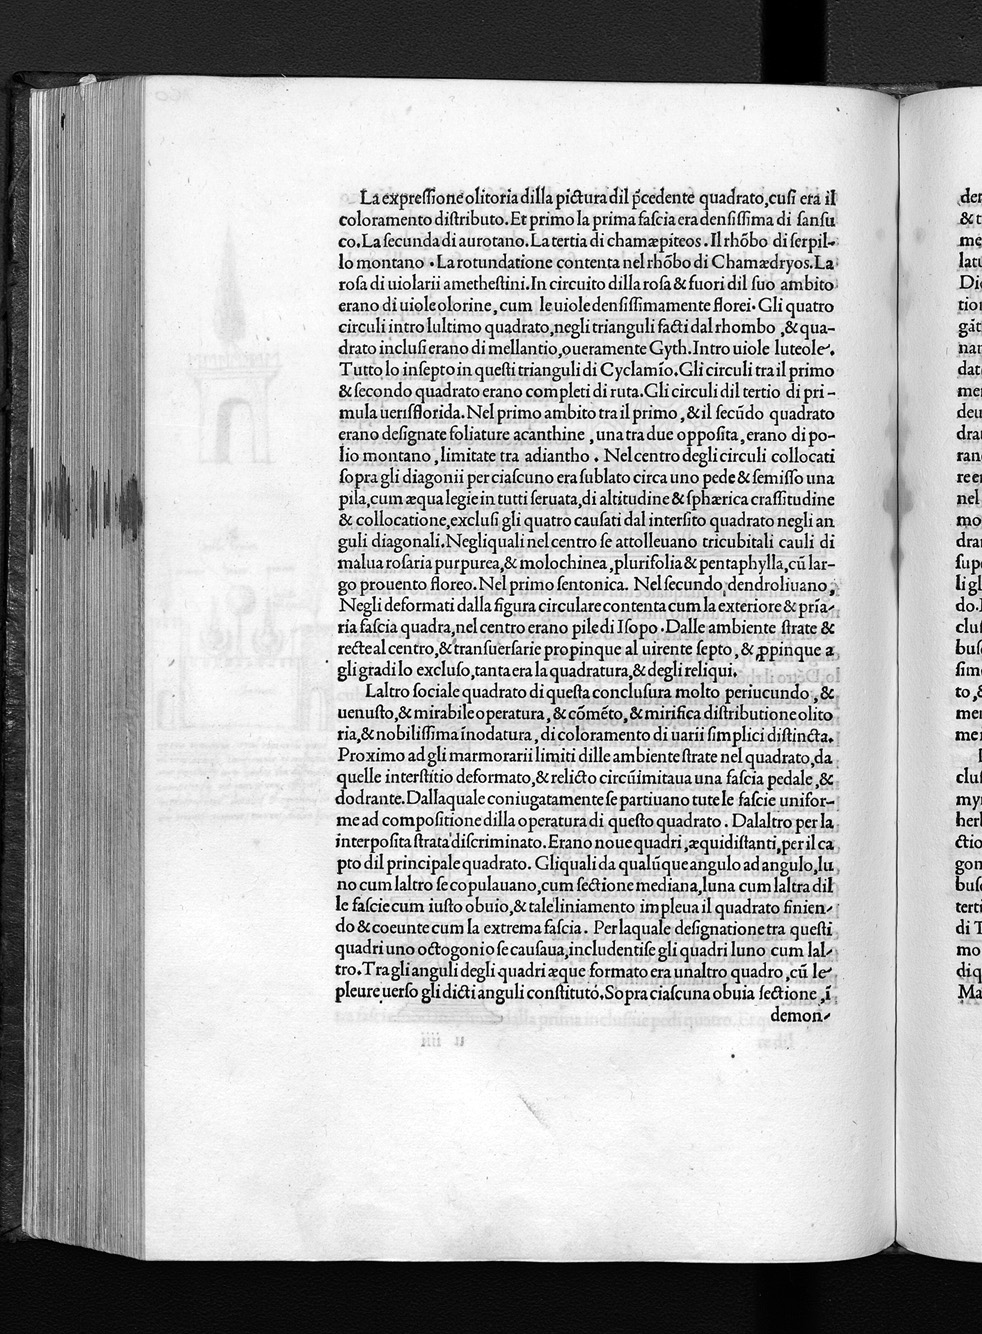 La expreſſione olitoria dilla pictura dil p̄cedente quadrato,cuſi era il
coloramento diſtributo. Et primo la prima faſcia era denſiſſima di ſanſu
co.La ſecunda di aurotano. La tertia di chamæpiteos . Il rhōbo di ſerpil-
lo montano . La rotundatione contenta nel rhōbo di Chamædryos. La
roſa di uiolarii ametheſtini. In circuito dilla roſa & fuori dil ſuo ambito
erano di uiole olorine, cum le uiole denſiſſimamente florei. Gli quatro
circuli intro lultimo quadrato,negli trianguli facti dal rhombo ,& qua-
drato incluſi erano di mellantio,oueramente Gyth. Intro uiole luteole.
Tutto lo inſepto in queſti trianguli di Cyclamīo. Gli circuli tra il primo
& ſecondo quadrato erano completi di ruta. Gli circuli dil tertio di pri-
mula ueriſflorida. Nel primo ambito tra il primo ,& il ſecūdo quadrato
erano deſignate foliature acanthine , una tra due oppoſita, erano di po-
lio montano , limitate tra adiantho . Nel centro degli circuli collocati
ſopra gli diagonii per ciaſcuno era ſublato circa uno pede & ſemiſſo una
pila,cum æqua legie in tutti ſeruata,di altitudine & ſphærica craſſitudine
& collocatione,excluſi gli quatro cauſati dal interſito quadrato negli an
guli diagonali. Negliquali nel centro ſe attolleuano tricubitali cauli di
malua roſaria purpurea,& molochinea , plurifolia & pentaphylla,cū lar-
go prouento floreo. Nel primo ſentonica. Nel ſecundo dendroliuano,
Negli deformati dalla figura circulare contenta cum la exteriore & prīa-
ria faſcia quadra,nel centro erano pile di Iſopo . Dalle ambiente ſtrate &
recte al centro,& tranſuerſarie propinque al uirente ſepto, & ꝓpinque a
gli gradi lo excluſo,tanta era la quadratura,& degli reliqui.
Laltro ſociale quadrato di queſta concluſura molto periucundo ,&
uenuſto,& mirabile operatura , & cōmēto, & mirifica diſtributione olito
ria,& nobiliſſima īnodatura , di coloramento di uarii ſimplici diſtincta.
Proximo ad gli marmorarii limiti dille ambiente ſtrate nel quadrato,da
quelle interſtitio deformato,& relicto circūimitaua una faſcia pedale ,&
dodrante. Dallaquale coniugatamente ſe partiuano tute le faſcie unifor-
me ad compoſitione dilla operatura di queſto quadrato . Dalaltro per la
interpoſita ſtrata diſcriminato. Erano noue quadri , æquidiſtanti,per il ca
pto dil principale quadrato. Gliquali da qualūque angulo ad angulo,lu
no cum laltro ſe copulauano,cum ſectione mediana,luna cum laltra dil
le faſcie cum iuſto obuio,& tale liniamento impleua il quadrato finien-
do & coeunte cum la extrema faſcia . Per laquale deſignatione tra queſti
quadri uno octogonio ſe cauſaua,includentiſe gli quadri luno cum lal-
tro. Tra gli anguli degli quadri æque formato era unaltro quadro , cū le
pleure uerſo gli dicti anguli conſtituto. Sopra ciaſcuna obuia ſectione , ī
demon-